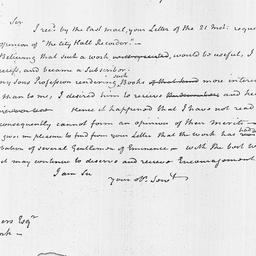 Sir
I recd. by the last mail, your Letter of the 21 inst: reque
opinion of "The City Hall Recorder."—
Believing that such a work would be useful, I
and became a Subscriber.
my Sons Profession rendering such Books more interes
than to me; I desired him to receive and
Hence it happened that I have not read
consequently cannot form an opinion of their Merits—
gives me pleasure to find from your Letter that the work has
bation of several Gentlemen of Eminence — with the best w
it may continue to deserve and receive Encouragement
I am Sir
your obt. Servt.
Esqr.
ork —